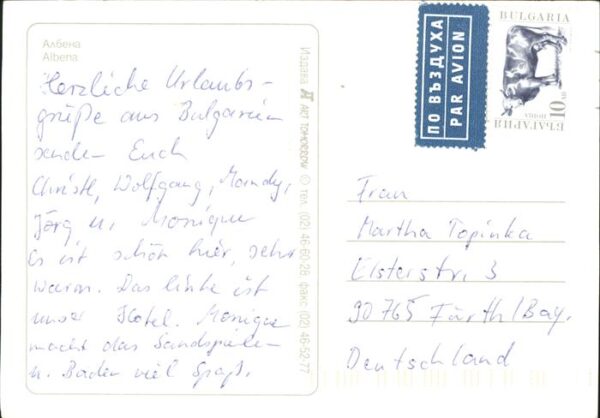 Албена
Albena
Herzliche Urlaubs-
grüße aus Bulgarien
senden Euch
Christl, Wolfgang, Mandy,
Jörg u. Monique
Es ist schön hier, sehr
warm. Das linke ist
unser Hotel. Monique
macht das Sandspielen
u. Baden viel Spaß.
Издава ART TOMORROW © тел. (02) 46-60-28 факс (02) 46-52-77
ПО ВЪЗДУХА
PAR AVION
BULGARIA
10 лв
ПОЩА
БЪЛГАРИЯ
Frau
Martha Topinka
Elsterstr. 3
90765 Fürth/Bay.
Deutschland